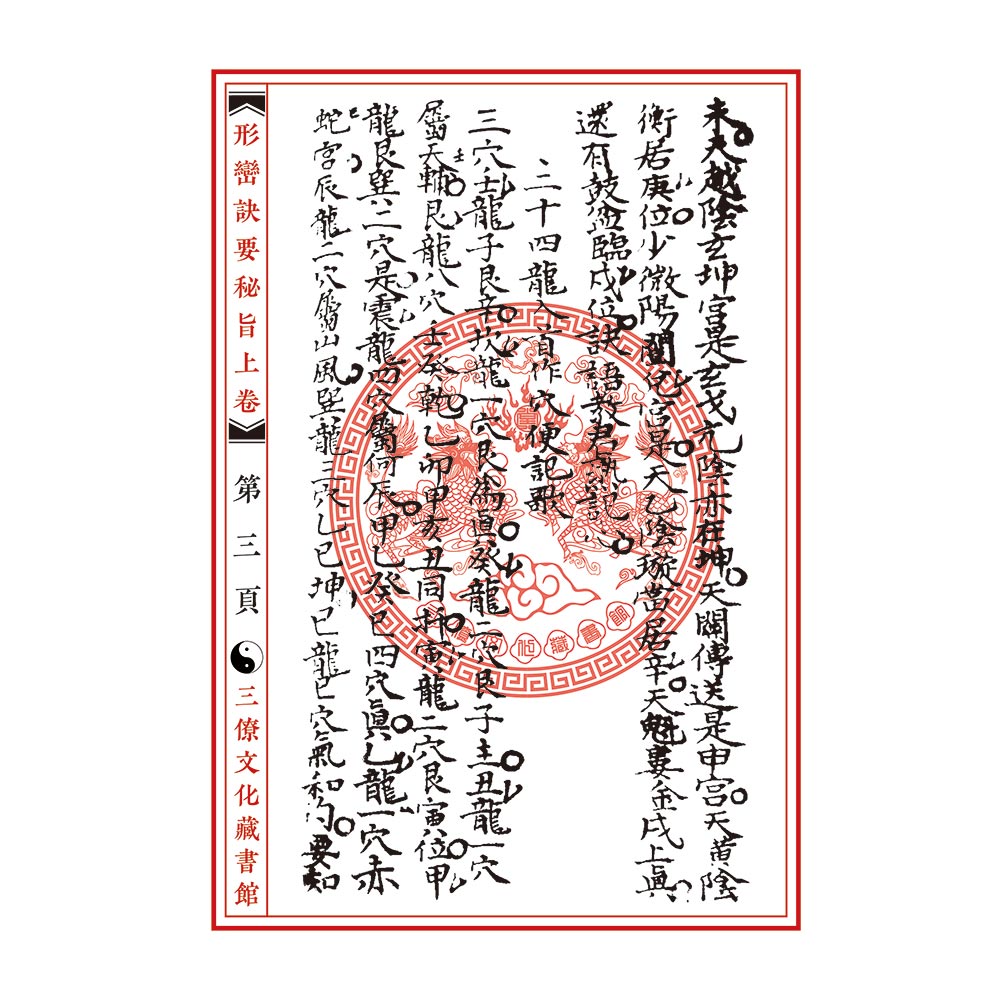 未天越陰玄坤宮是玄戈亢陰亦在坤天關傳送是申宮天黃陰
衡居庚位少微陽關兌宮是天乙陰璇當居辛天魁婁金戌上眞
還有鼓盆臨戌位訣語教君認
二十四龍入首作穴便記歌
三穴壬龍子艮辛坎龍一穴艮為眞癸龍二穴艮子主丑龍一穴
屬天輔艮龍八穴壬癸乾乙卯甲亥丑同扦寅龍二穴艮寅位甲
龍艮巽二穴是震龍四穴屬何辰甲乙癸巳四穴眞乙龍一穴赤
蛇宮辰龍二穴屬山風巽龍三穴乙巳坤巳龍巳穴氣和勻要知
《形巒訣要秘旨上卷》
第三頁
三僚文化藏書館